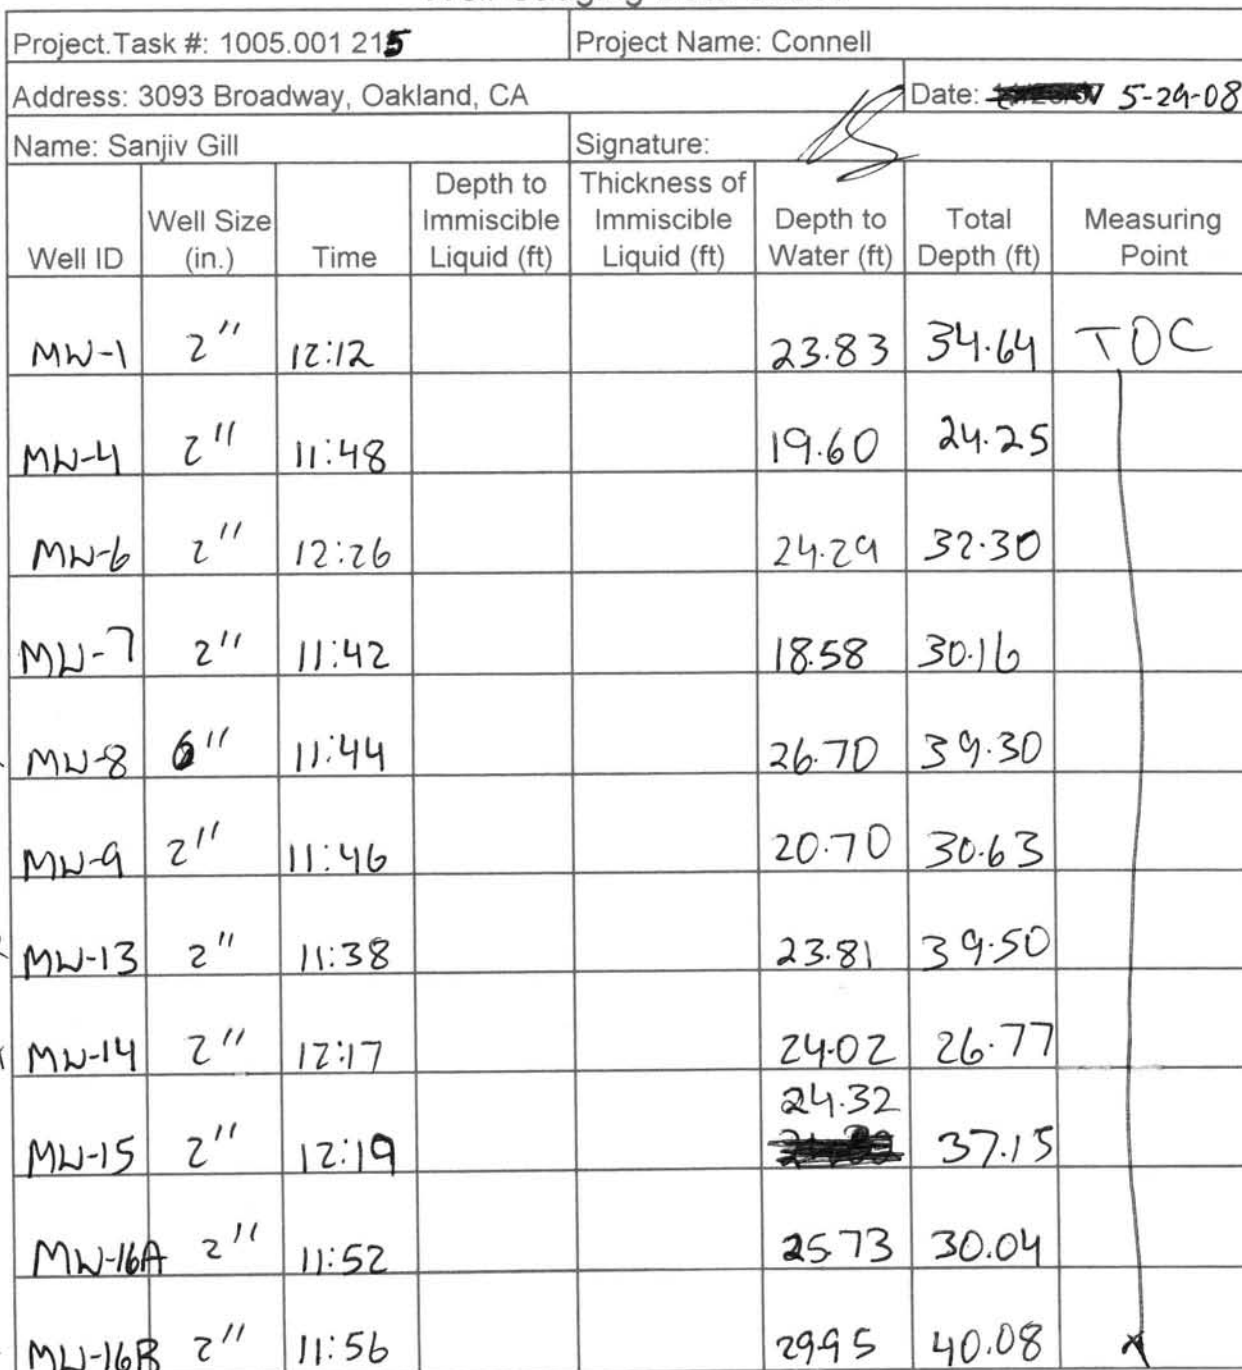 Project.Task #: 1005.001 215 Project Name: Connell
Address: 3093 Broadway, Oakland, CA Date: 5-29-08
Name: Sanjiv Gill Signature:
Well ID Well Size (in.) Time Depth to Immiscible Liquid (ft) Thickness of Immiscible Liquid (ft) Depth to Water (ft) Total Depth (ft) Measuring Point
MW-1 2" 12:12 23.83 34.64 TOC
MW-4 2" 11:48 19.60 24.25
MW-6 2" 12:26 24.29 32.30
MW-7 2" 11:42 18.58 30.16
MW-8 6" 11:44 26.70 39.30
MW-9 2" 11:46 20.70 30.63
MW-13 2" 11:38 23.81 39.50
MW-14 2" 12:17 24.02 26.77
MW-15 2" 12:19 24.32 37.15
MW-16A 2" 11:52 25.73 30.04
MW-16B 2" 11:56 29.95 40.08